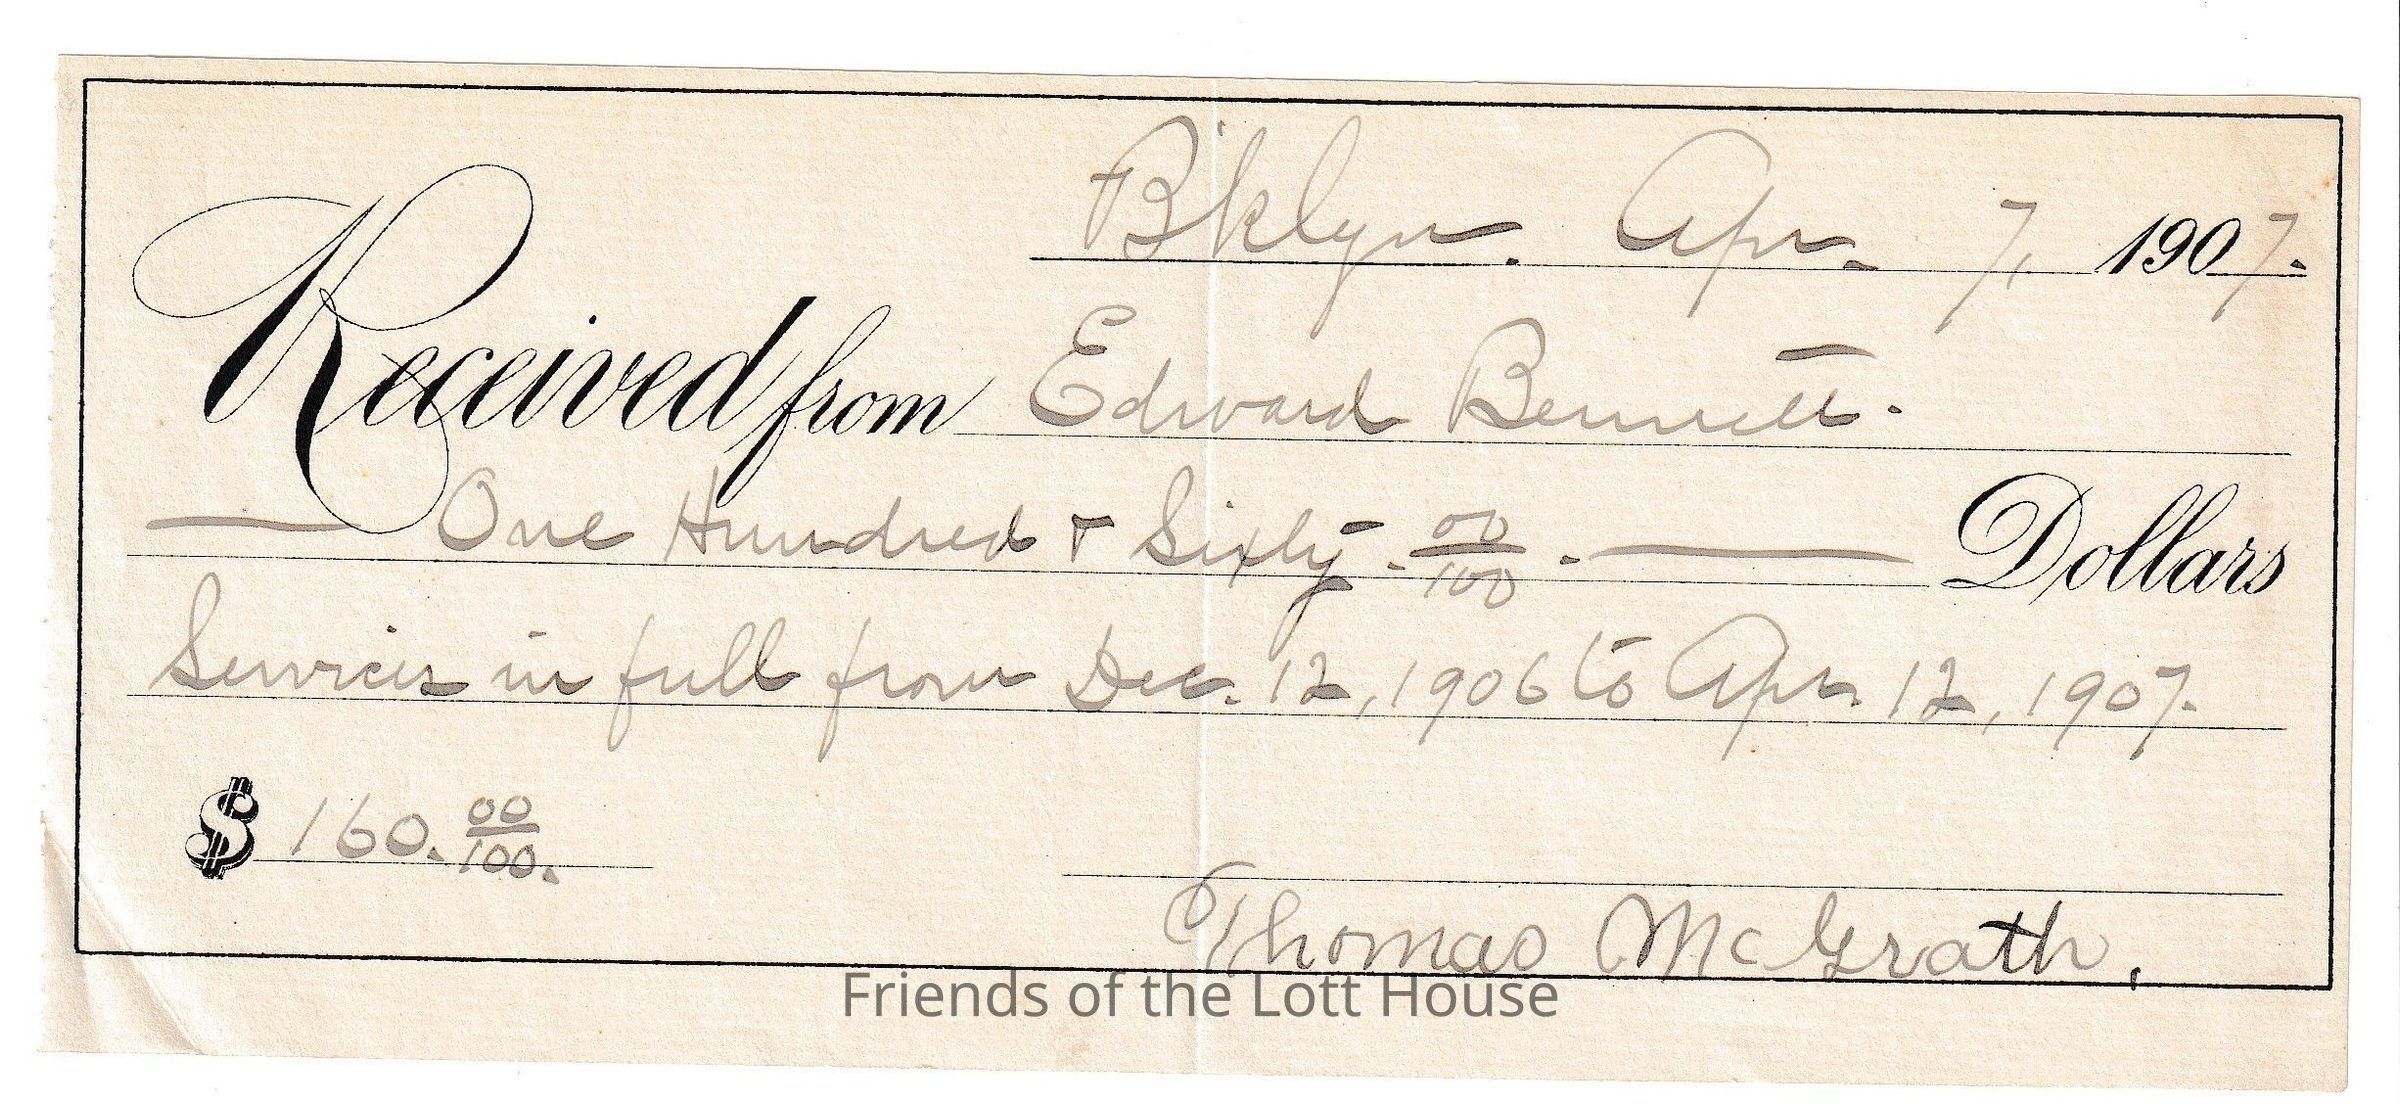 B'klyn. Apr. 7, 1907.
Received from Edward Bennett.
— One Hundred & Sixty. 00/100. — Dollars
Services in full from Dec. 12, 1906 to Apr. 12, 1907.
$ 160. 00/100.
Thomas McGrath.
Friends of the Lott House